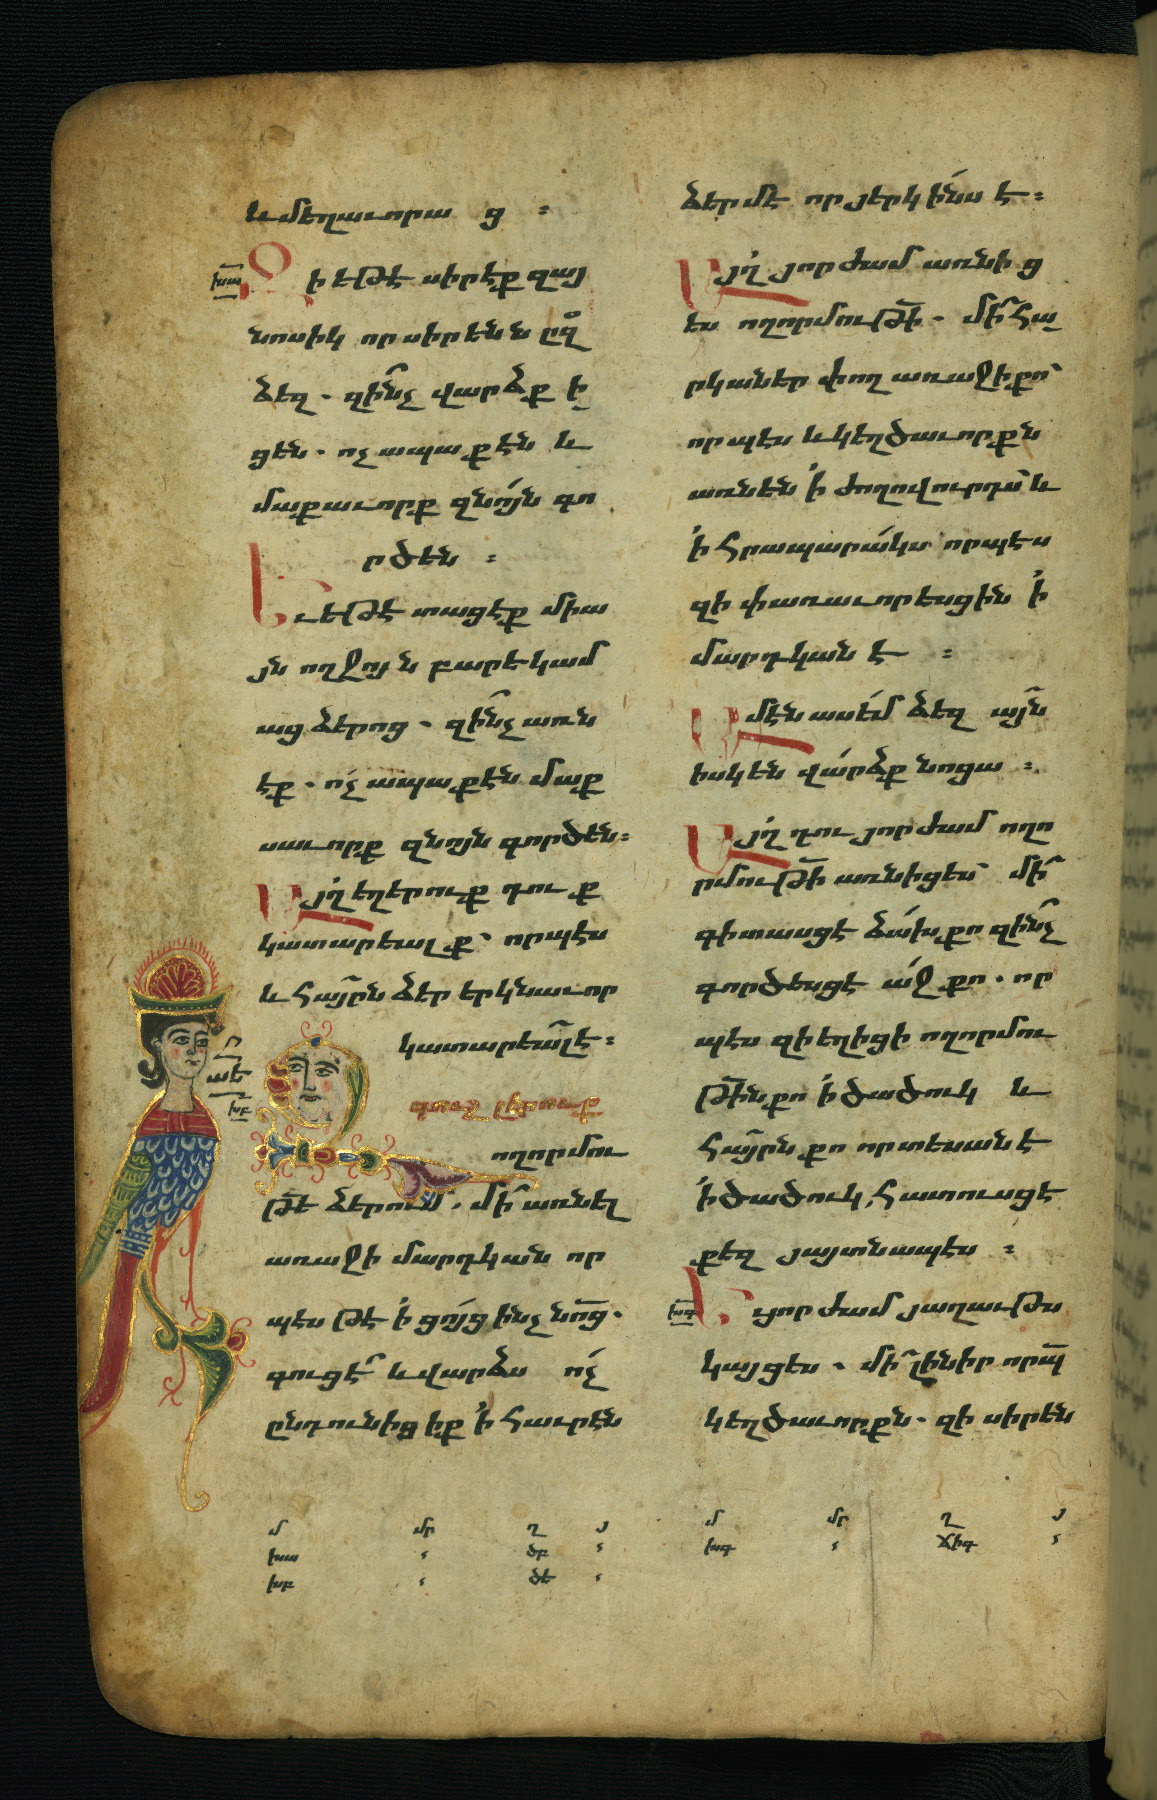 և մեղաւորաց :
խա
Զի եթէ սիրէք զայ
նոսիկ որ սիրենն ըզ
ձեզ . զի՞նչ վարձք ի
ցեն . ոչ ապաքէն և
մաքսաւորք զնոյն գո
րծեն :
Եւ եթէ տացէք միա
յն ողջոյն բարեկամ
աց ձերոց . զի՞նչ առն
էք . ոչ ապաքէն մաք
սաւորք զնոյն գործեն :
Այղ եղերուք դուք
կատարեալք՝ որպէս
և հայրն ձեր երկնաւոր
կատարեալ է :
խբ
զոյշ լերուք
ողորմու
թե ձերում . մի՛ առնել
առաջի մարդկան որ
պէս թէ ՚ի ցոյց ինչ նոց .
գուցէ՛ և վարձս ոչ
ընդունիցիք ՚ի հաւրէն
ձերմէ որ յերկինս է :
Այղ յորժամ առնից
ես ողորմութի . մի՛ հա
րկաներ փող առաջի քո՝
որպէս և կեղծաւորքն
առնեն ՚ի ժողովուրդս և
՚ի հրապարակս որպէս
զի փառաւորեսցին ՚ի
մարդկանէ :
Ամէն ասեմ ձեզ այն
իսկ են վարձք նոցա :
Այղ դու յորժամ ողո
րմութի առնիցես՝ մի՛
գիտասցէ ձախ քո զի՛նչ
գործեսցէ աջ քո . որ
պէս զի եղիցի ողորմու
թին քո ՚ի ծածուկ և
հայրն քո որ տեսանէ
՚ի ծածուկ , հատուսցէ
քեզ յայտնապէս :
խգ
Եւ յորժամ յաղաւթս
կայցես . մի՛ լինիր որպ
կեղծաւորքն . զի սիրեն
մ մր ղ յ
խա ՛ ծբ ՛
խբ ՛ ծե ՛
մ մր ղ յ
խգ ՛ ճիգ ՛